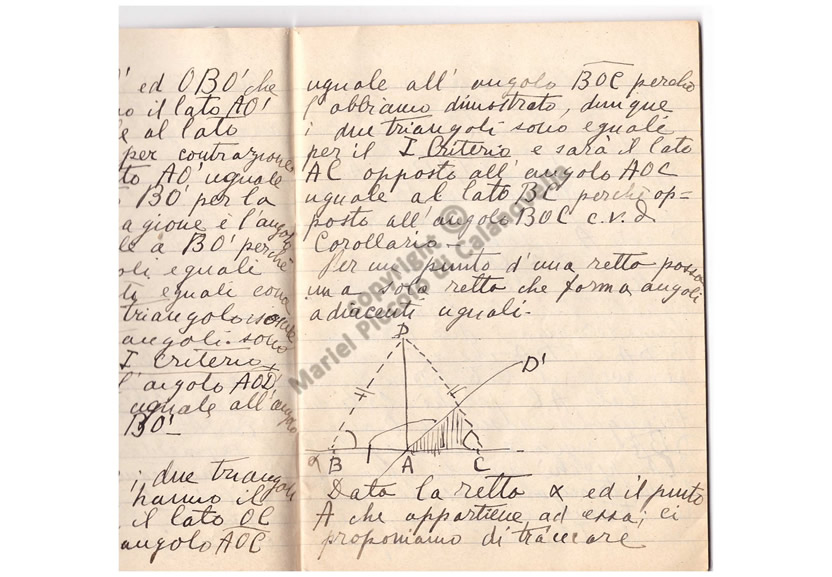 ed OBO' che
o il lato AO'
e al lato
per contrazione
to AO' uguale
BO' per la
agione e l'angolo
le a BO' perchè
oli eguali
ti eguali
triangolo
angoli sono
I Criterio
l'angolo AOD'
uguale all'
BO' -
i due triangoli
hanno il
il lato OC
angolo AOC
uguale all' angolo BOC perchè
l'abbiamo dimostrato, dunque
i due triangoli sono eguali
per il I Criterio e sarà il lato
AC opposto all'angolo AOC
uguale al lato BC perchè op=
posto all'angolo BOC c.v.d
Corollario -
Per un punto d'una retta possa
una sola retta che forma angoli
adiacenti uguali.
D
D'
α B A C
Data la retta α ed il punto
A che appartiene ad essa; ci
proponiamo di tracciare
copyright ©
Mariel Piccolo di Calanovella